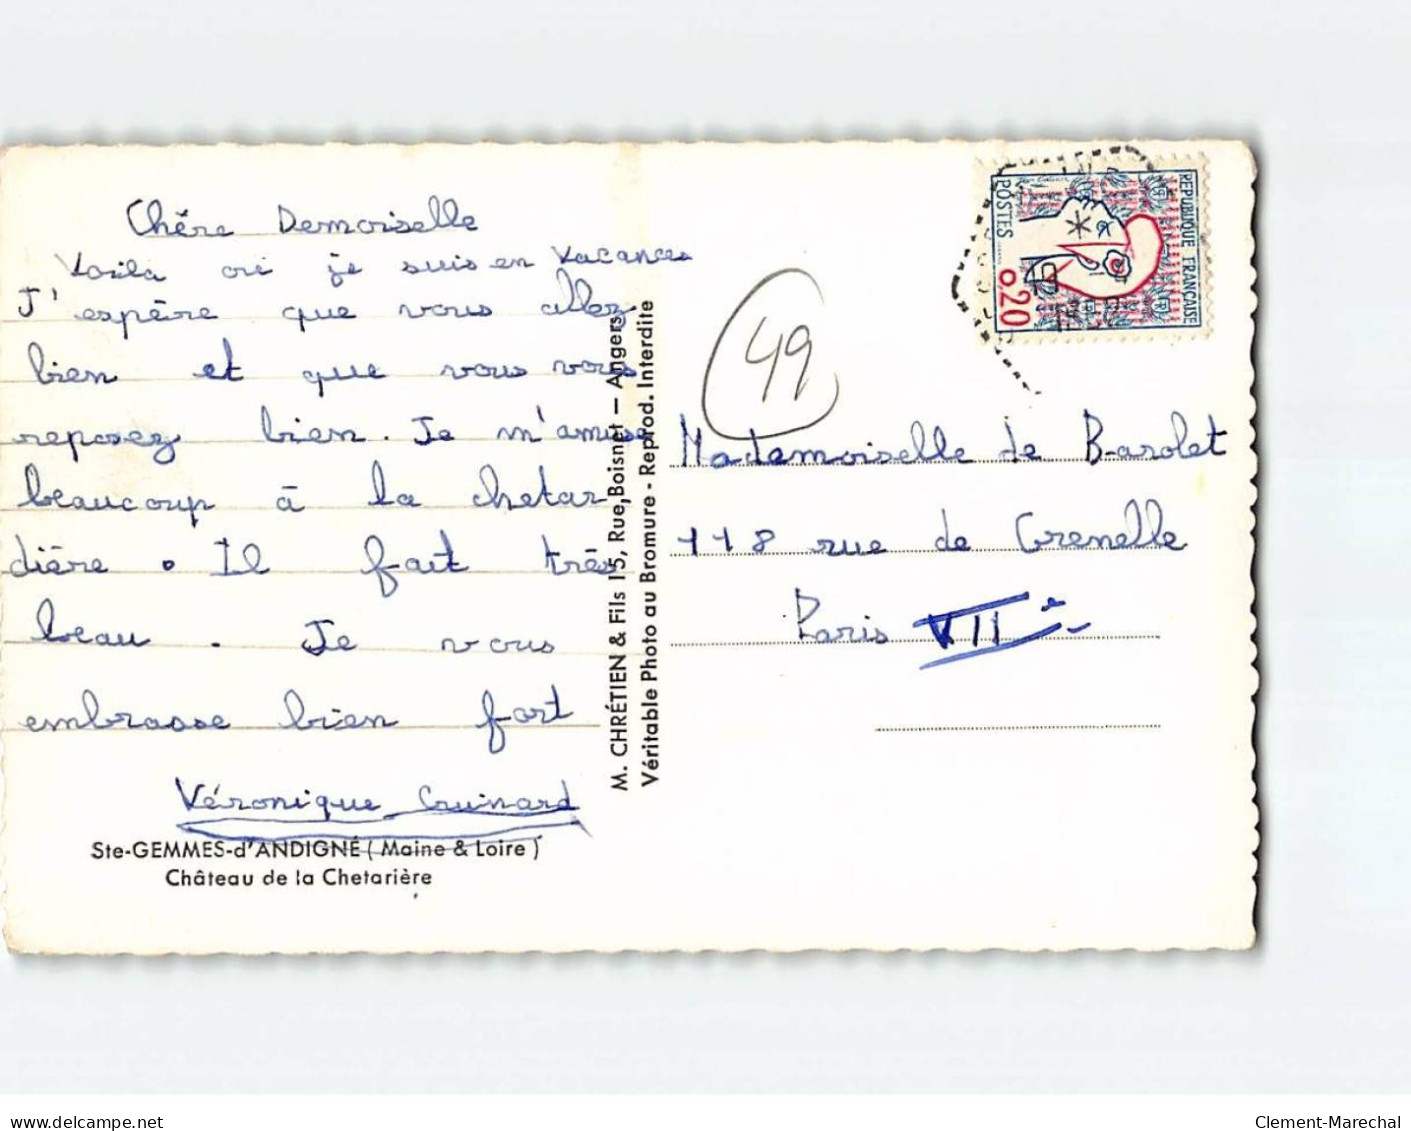 Chère Demoiselle
Voila où je suis en vacances
J'espère que vous allez
bien et que vous vous
reposez bien. Je m'amuse
beaucoup à la chetar
dière. Il fait très
beau. Je vous
embrasse bien fort
Véronique Guinard
Ste-GEMMES-d'ANDIGNÉ (Maine & Loire)
Château de la Chetarière
M. CHRÉTIEN & Fils 15, Rue Boisnet — Angers
Véritable Photo au Bromure - Reprod. Interdite
49
REPUBLIQUE FRANÇAISE
POSTES
0,20
Mademoiselle de Barolet
118 rue de Grenelle
Paris VIIe
www.delcampe.net
Clement-Marechal